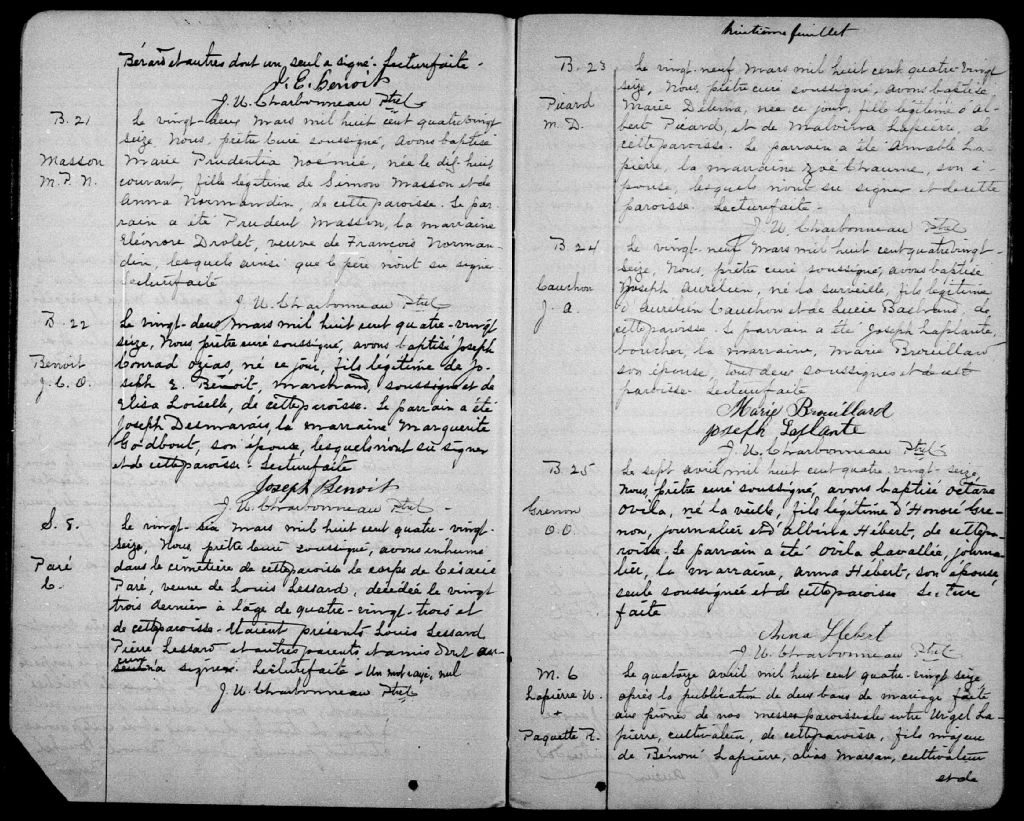 Bérard et autres dont un seul a signé. Lecture faite.
J. E. Benoit
J. U. Charbonneau Ptre
B. 21
Masson
M. P. N.
Le vingt-deux Mars mil huit cent quatre vingt
seize, Nous, prêtre Curé soussigné, avons baptisé
Marie Prudentia Noémie, née le dix huit
courant, fille légitime de Simon Masson et de
Anna Normandin, de cette paroisse. Le par
rain a été Prudent Masson, la marraine
Eléonore Drolet, veuve de Francois Norman
din, lesquels ainsi que le père n'ont su signer
Lecture faite
J. U. Charbonneau Ptre
B. 22
Benoit
J. C. O.
Le vingt-deux Mars mil huit cent quatre-vingt
seize, Nous prêtre curé soussigné, avons baptisé Joseph
Conrad Ozias, né ce jour, fils légitime de Jo
seph E. Benoit, marchand, soussigné et de
Elisa Loiselle, de cette paroisse. Le parrain a été
Joseph Desmarais, la marraine Marguerite
Godbout, son épouse, lesquels n'ont su signer
et de cette paroisse. Lecture faite
Joseph Benoit
J. U. Charbonneau Ptre
S. 5.
Paré
C.
Le vingt-six Mars mil huit cent quatre-vingt-
seize, Nous, prêtre curé soussigné, avons inhumé
dans le cimetière de cette paroisse le corps de Césarie
Paré, veuve de Louis Lessard, décédée le vingt
trois dernier à l'âge de quatre-vingt-trois et
de cette paroisse. Etaient présents Louis Lessard
Pierre Lessard et autres parents et amis dont au
cun n'a signé. Lecture faite - Un mot rayé, nul
J. U. Charbonneau Ptre
huitième feuillet
B. 23
Picard
M. D.
Le vingt-neuf Mars mil huit cent quatre-vingt
seize, Nous, prêtre curé soussigné, avons baptisé
Marie Délima, née ce jour, fille légitime d'Al
bert Picard, et de Malvina Lapierre, de
cette paroisse. Le parrain a été Aimable La
pierre, la marraine Zoé Chaume, son é
pouse, lesquels n'ont su signer et de cette
paroisse. Lecture faite.
J. U. Charbonneau Ptre
B 24
Cauchon
J. A.
Le vingt-neuf Mars mil huit cent quatre vingt-
seize, Nous, prêtre curé soussigné, avons baptisé
Joseph Aurélien, né la surveille, fils légitime
d'Aurélien Cauchon et de Lucie Bastrand, de
cette paroisse. Le parrain a été Joseph Laplante,
boucher, la marraine, Marie Brouillard
son épouse, tous deux soussignés et de cette
paroisse. Lecture faite
Marie Brouillard
Joseph Laplante
J. U. Charbonneau Ptre.
B. 25
Grenon
O. O.
Le sept avril mil huit cent quatre-vingt-seize
Nous, prêtre curé soussigné, avons baptisé Octave
Ovila, né la veille, fils légitime d'Honoré Gre
non, journalier et d'Albina Hébert, de cette pa-
roisse. Le parrain a été Ovila Lavallée, journa
lier, la marraine, Anna Hébert, son épouse
seule soussignée et de cette paroisse. Lecture
faite
Anna Hebert
J. U. Charbonneau Ptre
M. 6
Lapierre U.
+
Paquette R.
Le quatorze avril mil huit cent quatre-vingt seize
après la publication de deux bans de mariage faite
aux prônes de nos messes paroissiales entre Urgel La
pierre, cultivateur, de cette paroisse, fils majeur
de Bénoni Lapierre, alias Marsan, cultivateur
et de